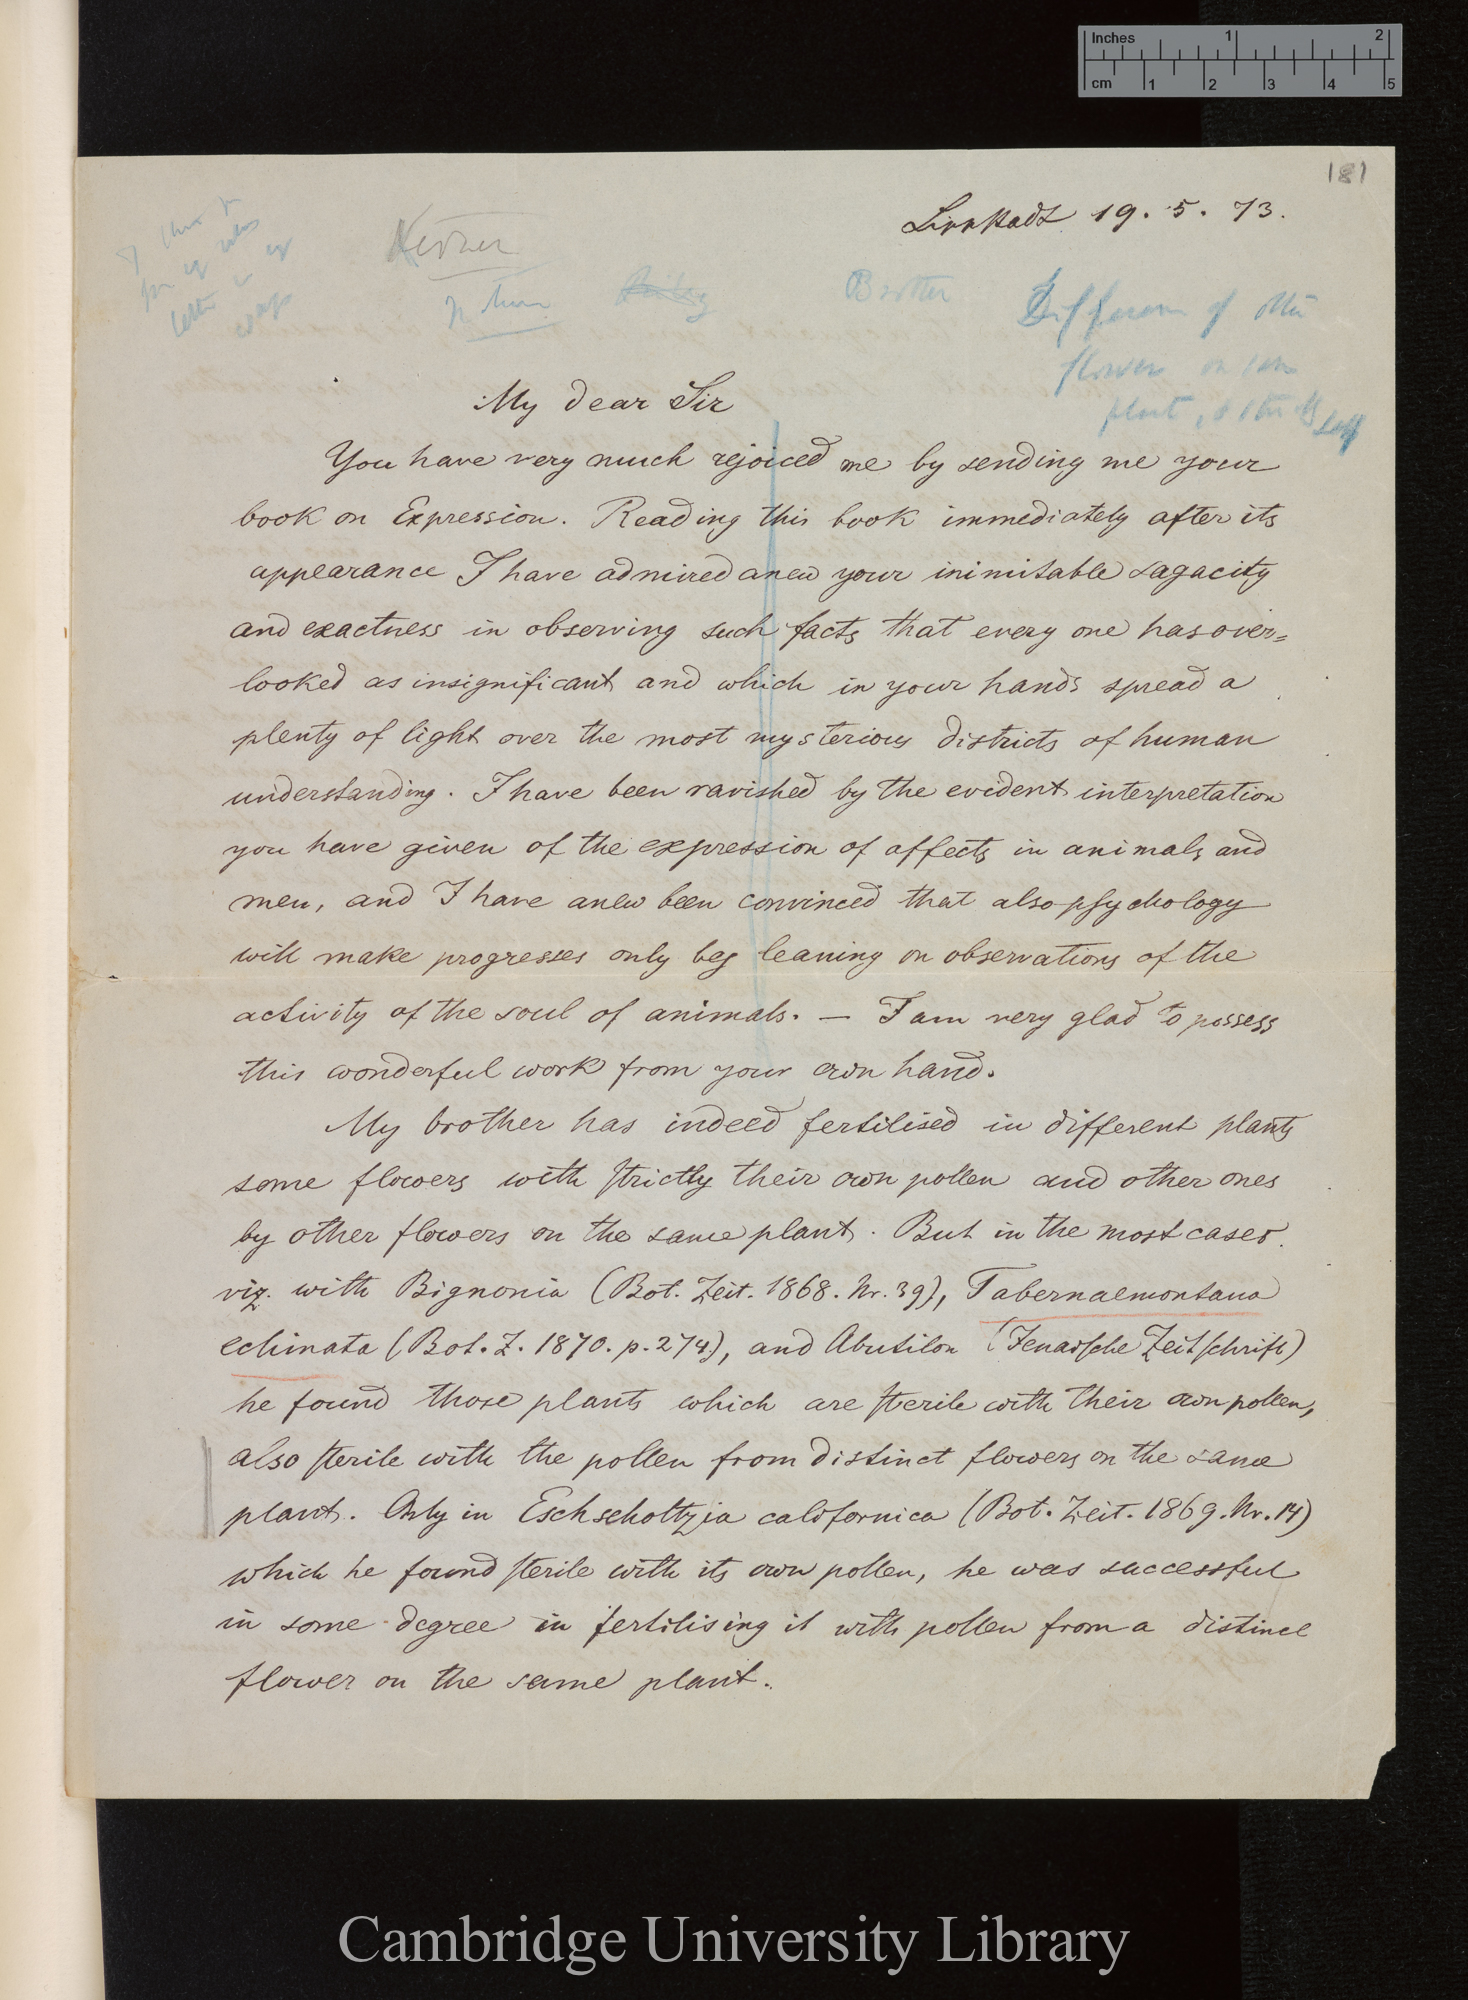 Inches 1 2
cm 1 2 3 4 5
181
Lippstadt 19. 5. 73.
Kerner
Brother
Difference of other
flowers on same
plant, & self
My dear Sir
You have very much rejoiced me by sending me your
book on Expression. Reading this book immediately after its
appearance I have admired anew your inimitable sagacity
and exactness in observing such facts that every one has over=
looked as insignificant and which in your hands spread a
plenty of light over the most mysterious districts of human
understanding. I have been ravished by the evident interpretation
you have given of the expression of affects in animals and
men, and I have anew been convinced that also psychology
will make progresses only by leaning on observations of the
activity of the soul of animals. — I am very glad to possess
this wonderful work from your own hand.
My brother has indeed fertilised in different plants
some flowers with strictly their own pollen and other ones
by other flowers on the same plant. But in the most cases
viz. with Bignonia (Bot. Zeit. 1868. Nr. 39), Tabernaemontana
echinata (Bot. Z. 1870. p. 274), and Abutilon (Jenaische Zeitschrift)
he found those plants which are sterile with their own pollen,
also sterile with the pollen from distinct flowers on the same
plant. Only in Eschscholtzia californica (Bot. Zeit. 1869. Nr. 14)
which he found sterile with its own pollen, he was successful
in some degree in fertilising it with pollen from a distinct
flower on the same plant.
Cambridge University Library